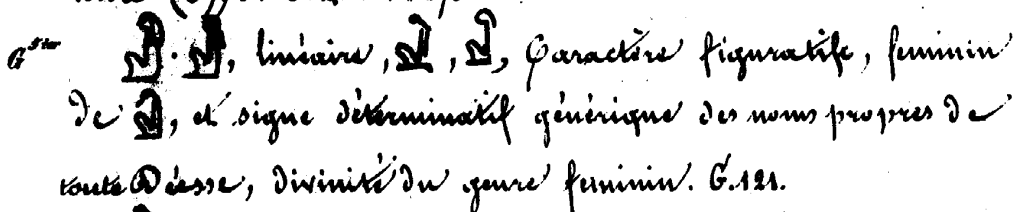 𓁐 · 𓁐, linéaire, 𓁐, 𓁐, Caractère figuratif, feminin
De 𓀭, et signe déterminatif générique des noms propres de
toute Déesse, divinité du genre feminin. G. 121.